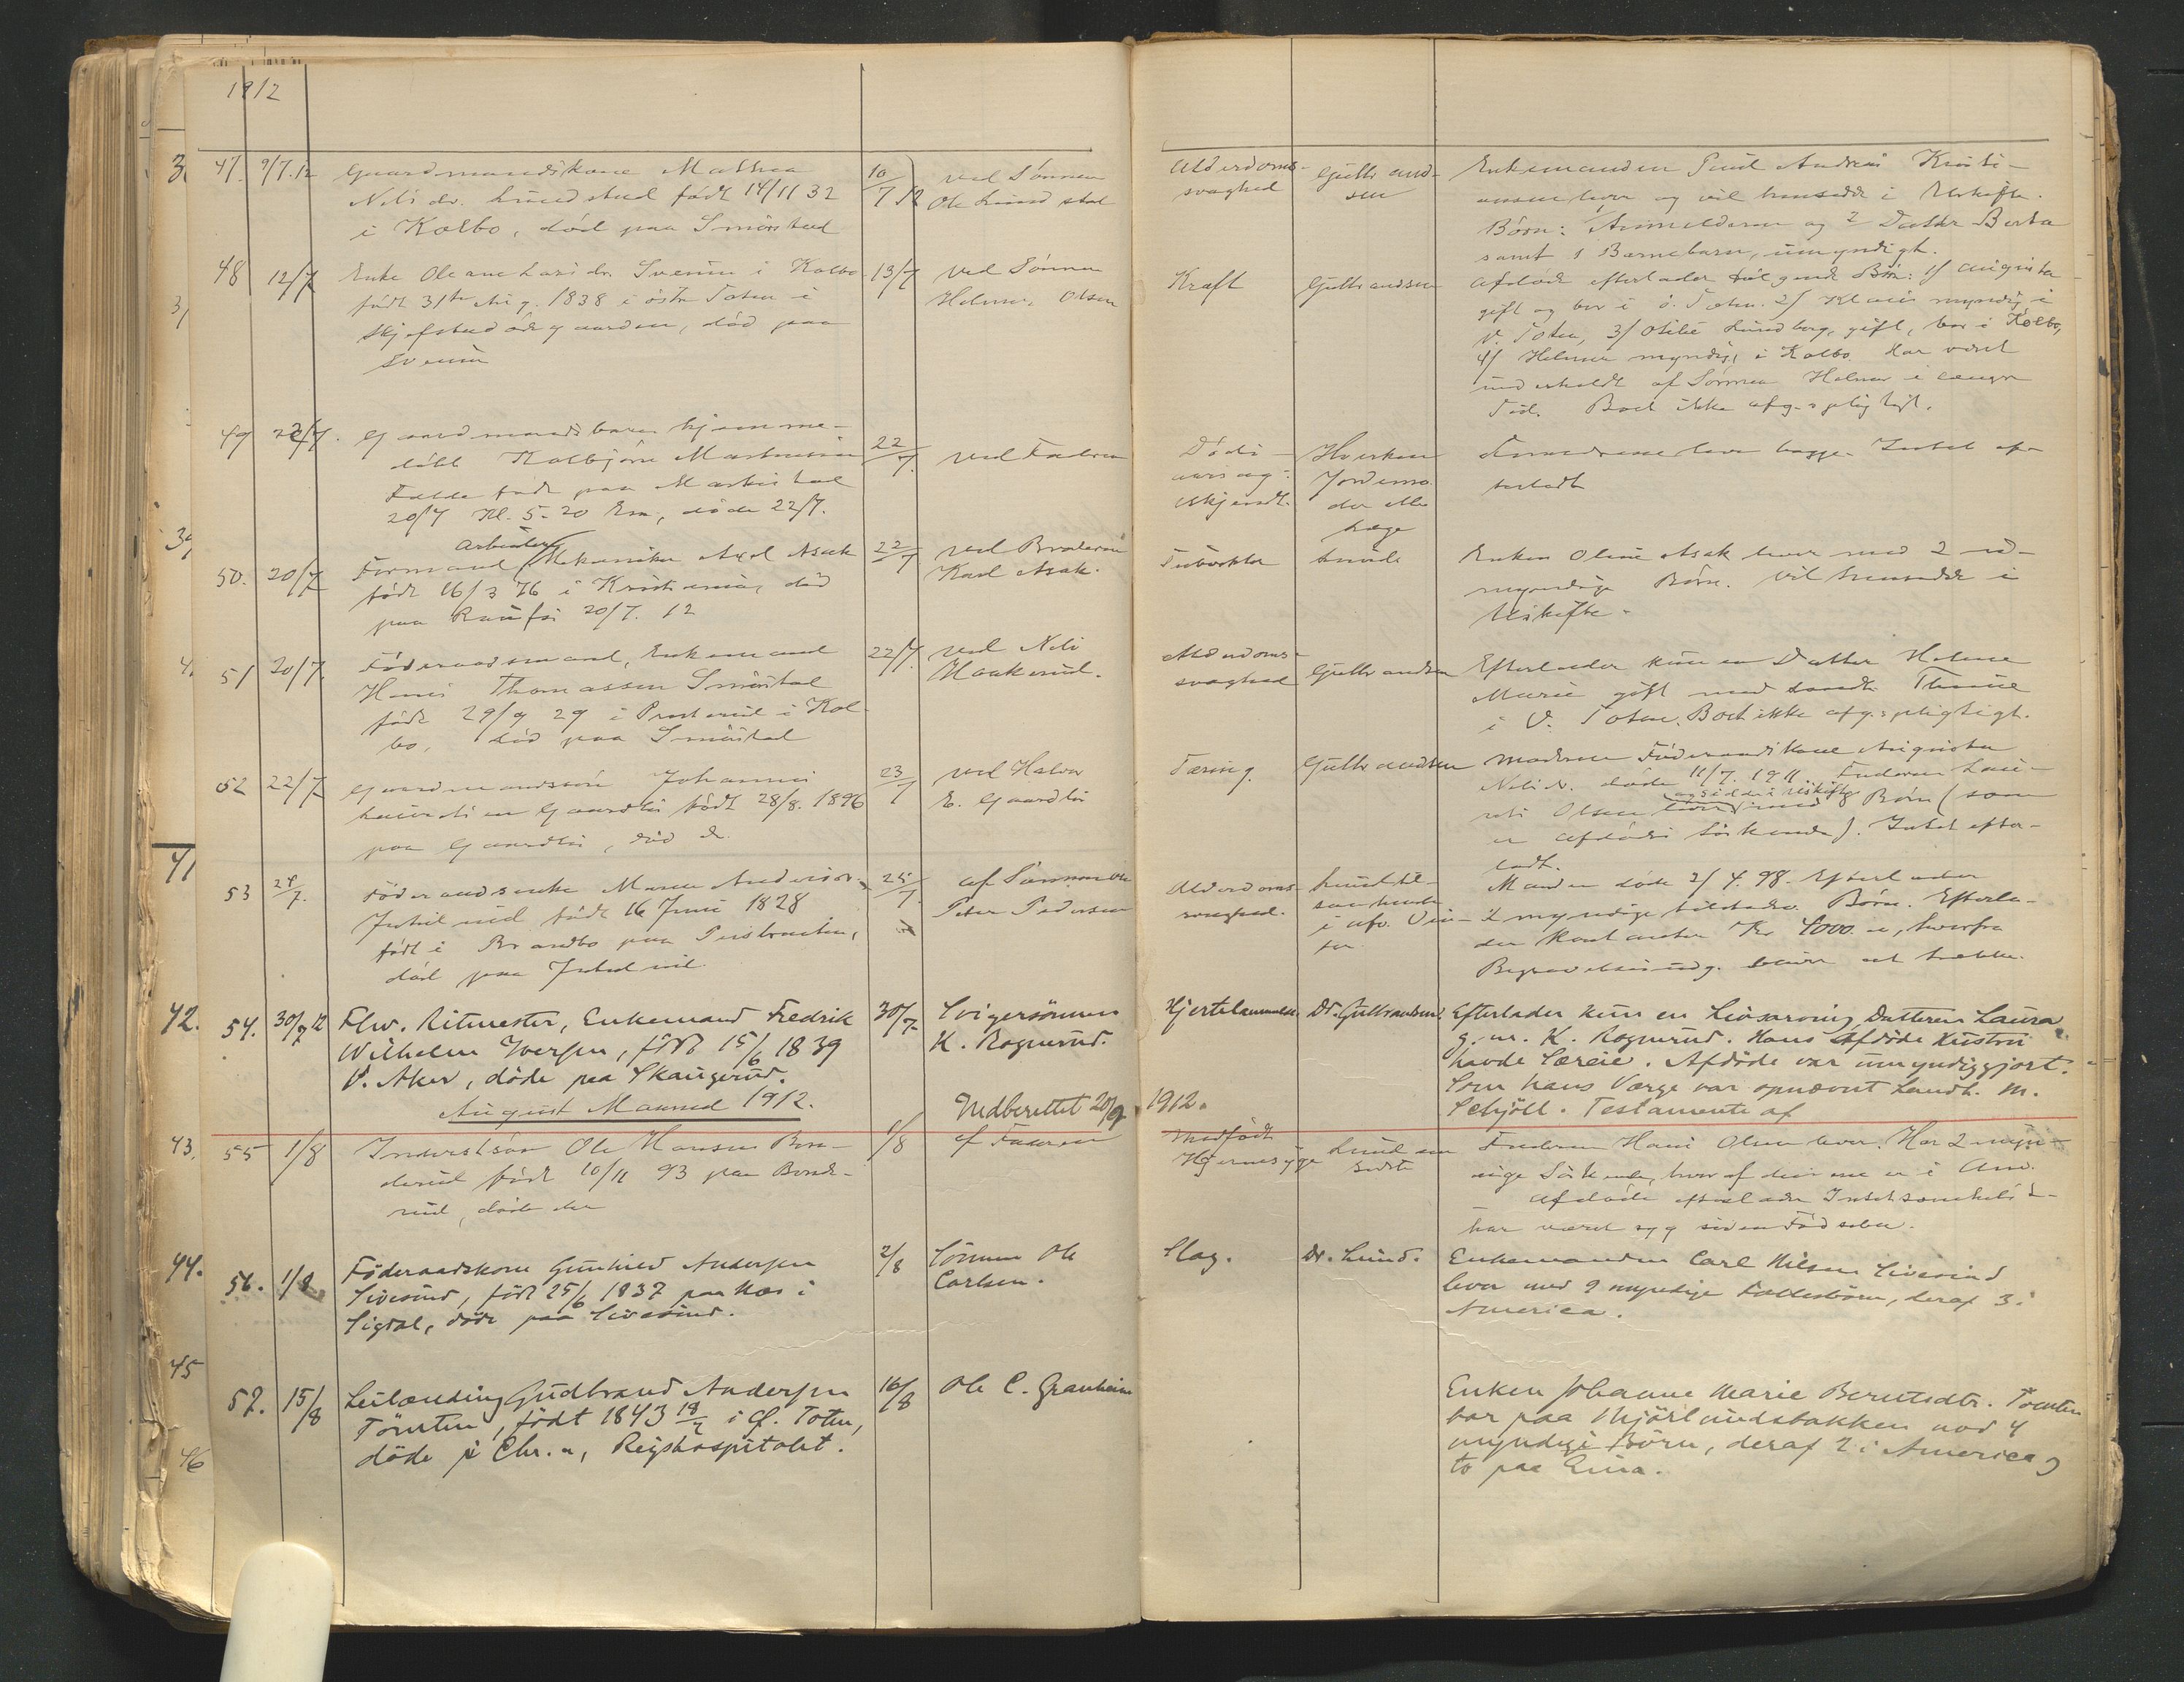 1912
47. 9/7.12 Gaardmandskone Mathea
Nels dr. Lundstad født 14/11 32
i Kolbo, død paa Smörstad
10/7 12 ved Sønnen
Ole Lundstad
Alderdoms-
svaghed
Gulbrand-
sen
Enkemanden Poul Andreas Kristi-
ansen lever og vil hensidde i Uskifte.
Børn: Anmelderen og 2 Datter Berta
samt 1 Barnebarn, umyndigt.
48 12/7 Enke Oleane Larsdr. Sveum i Kolbo
født 31te Aug. 1838 i østre Toten i
Skjefstadødegaarden, død paa
Sveum
13/7 ved Sønnen
Helmer Olsen
Kræft
Gulbrandsen
Afdøde efterlader følgende Børn: 1/ Augusta
gift og bor i ø. Toten. 2/ Klaus myndig i
V. Toten, 3/ Otilie Lundborg, gift, bor i Kolbo,
4/ Helmer myndig, i Kolbo. Har været
underholdt af Sønnen Helmer i længre
Tid. Boet ikke afg.spligtigt.
49 22/7. Gaardmandsbarn hjemme-
døbt Kolbjørn Martinsen
Falde født paa Markistad
20/7 Kl. 5-20 Em, døde 22/7.
22/7. ved Faderen
Døds-
aarsag:
Ukjendt.
Hverken
Jordemo
der eller
Læge
Forældrene lever begge. Intet ef-
terladt
50. 20/7 Formand Arbeider Mekaniker Axel Asak
født 16/3 76 i Kristiania, død
paa Raufos 20/7. 12
22/7 ved Broderen
Karl Asak.
Tuberkler
Lunde
Enken Oline Asak lever med 2 u-
myndige Børn. vil hensidde i
Uskifte.
51 20/7. Föderaadsmand, Enkemand
Hans Thomassen Smörstad
født 29/9 29 i Prosterud i Kol-
bo, død paa Smörstad
22/7. ved Nils
Haakerud.
Alderdoms-
svaghed
Gulbrandsen
Efterlader kun en Datter Helene
Marie gift med Landh. Thune
i V. Toten. Boet ikke afg.spligtigt.
52 22/7 Gaardmandssøn Johannes
Lauritsen Gaardløs født 28/8. 1896
paa Gaardløs, død do.
23/7 ved Halvor
E. Gaardløs
Tæring.
Gulbrandsen
Moderen Föderaadskone Augusta
Nelsdr. døde 11/7. 1911. Faderen Lau-
og sidder i Uskifte
rits Olsen lever med 8 Børn (som
er afdødes Söskende). Intet efter-
ladt.
53 24/7. Föderaadsenke Maren Andersdr.
Julsrud født 16 Juni 1828
født i Brandbo paa Præstraden,
død paa Julsrud
25/7. af Sønnen
Peter Pedersen
Alderdoms-
svaghed.
Lund til-
saa hende
i afv. Vin-
ter.
Manden døde 2/4. 98. Efterlader
2 myndige tilstedev. Børn. Efterla-
der Kontanter Kr. 4000.-, hvorfra
Begravelsesudg. bliver at trække.
54. 30/7 12 Flw. Ritmester, Enkemand Fredrik
Wilhelm Iversen, født 15/6 1839
V. Aker, døde paa Skaugerud.
30/7 Svigersønnen
K. Rognerud.
Hjertelammelse
Dr. Gulbrandsen.
Efterlader kun en Livsarving, Datteren Laura
g. m. K. Rognerud. Hans Afdøde Hustru
havde Særeie. Afdøde var umyndiggjort.
Som hans Værge var opnævnt Landh. M.
Schjöll. Testamente af
August Maaned 1912.
Indberettet 20/9 1912.
55 1/8 Inderstsøn Ole Hansen Bon-
derud født 10/11 93 paa Bonde-
rud, døde der
1/8 af Faderen
Medfödt
Hjernesyge
Lund saa
sidste
Faderen Hans Olsen lever. Har 2 myn-
dige Söskende, hvoraf den ene er i Am.
Afdøde efterlader Intet
har været syg siden Födselen.
56. 1/8 Föderaadskone Gunhild Andersen
Sivesind, född 25/6 1837 paa Næs i
Sigdal, døde paa Sivesind.
2/8 Sönnen Ole
Carlsen.
Slag.
Dr. Lund.
Enkemanden Carl Nilsen Sivesind
lever med 9 myndige Fællesbörn, deraf 3 i
America.
57. 15/8 Leilænding Gudbrand Andersen
Tömten, født 1843 18/7 i Ø. Toten,
döde på Chr.a, Rigshospitalet.
16/8 Ole C. Granheim
Enken Johanne Marie Berntsdtr. Tomten
bor paa Mjörlundsbakken med 4
myndige Börn, deraf 2 i America og
to paa Eina.
3
3
39
4.
41
42.
43.
44.
45
46